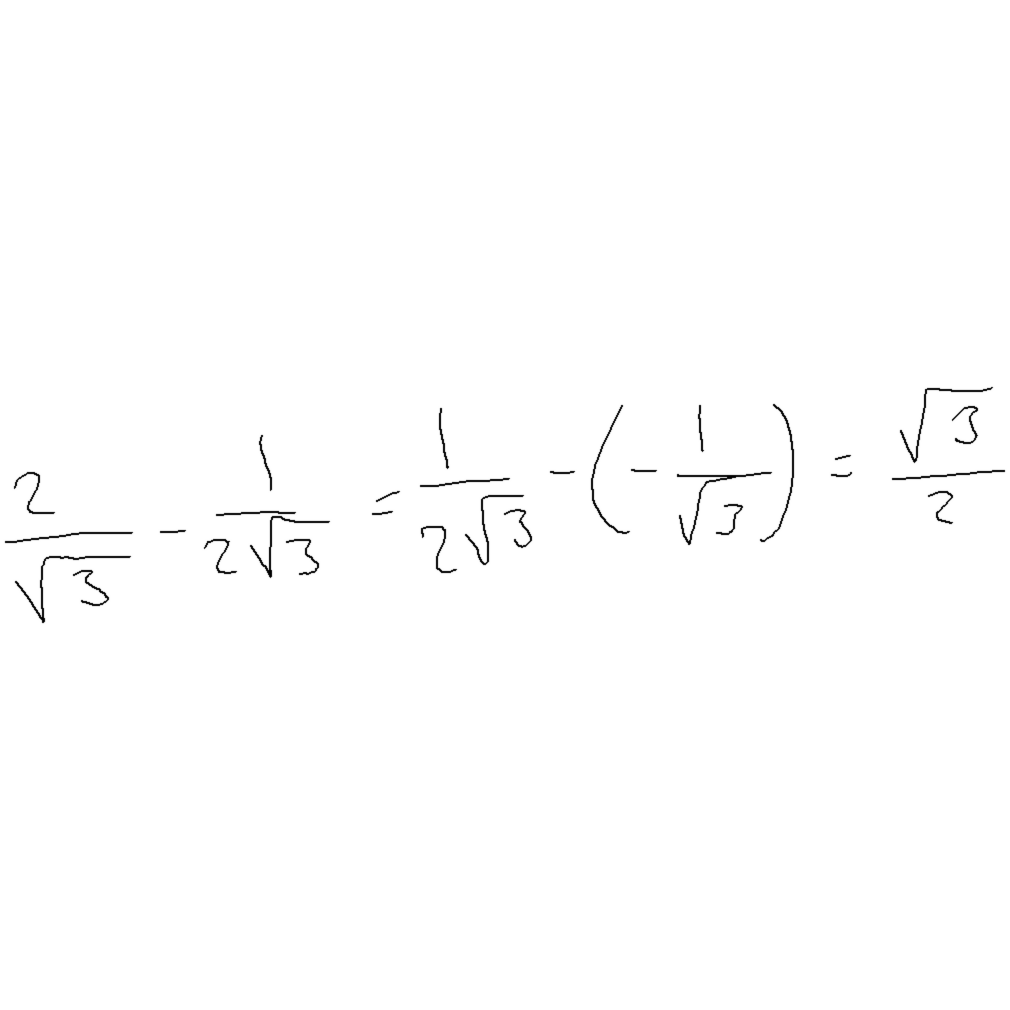 \frac{2}{\sqrt{3}} - \frac{1}{2\sqrt{3}} = \frac{1}{2\sqrt{3}} - \left( - \frac{1}{\sqrt{3}} \right) = \frac{\sqrt{3}}{2}